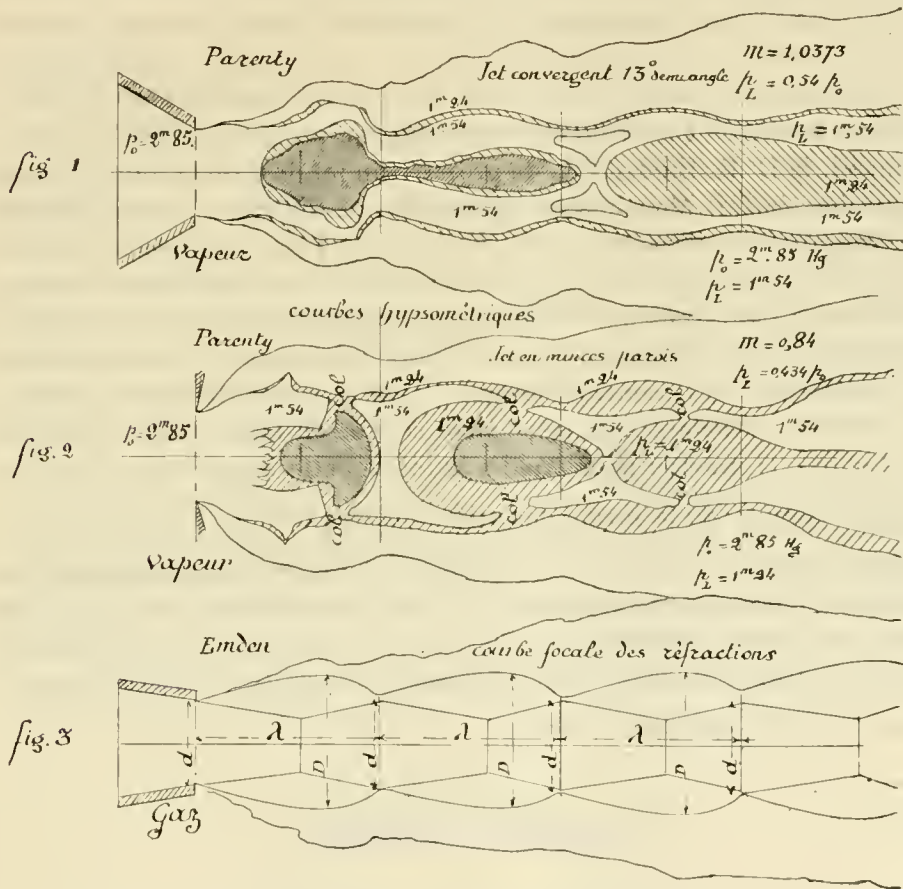 Parenty
Jet convergent 13° demi angle
m = 1,0373
p_L = 0,54 p_o
fig 1
p_o = 2^m 85.
1^m 24
1^m 54
p_L = 1^m, 54
1^m 24
1^m 54
1^m 54
Vapeur
p_o = 2^m. 85 Hg
p_L = 1^m 54
courbes hypsométriques
Parenty
Jet en minces parois
m = 0,84
p_L = 0,434 p_o
fig. 2
p_o = 2^m 85
1^m 54
col
1^m 54
1^m 24
1^m 24
col
1^m 24
1^m 54
col
p_L = 1^m 24
1^m 54
col
col
1^m 54
col
Vapeur
p_o = 2^m 85 Hg
p_L = 1^m 24
Emden
courbe focale des réfractions
fig. 3
d
λ
D
d
λ
D
d
λ
D
d
Gaz